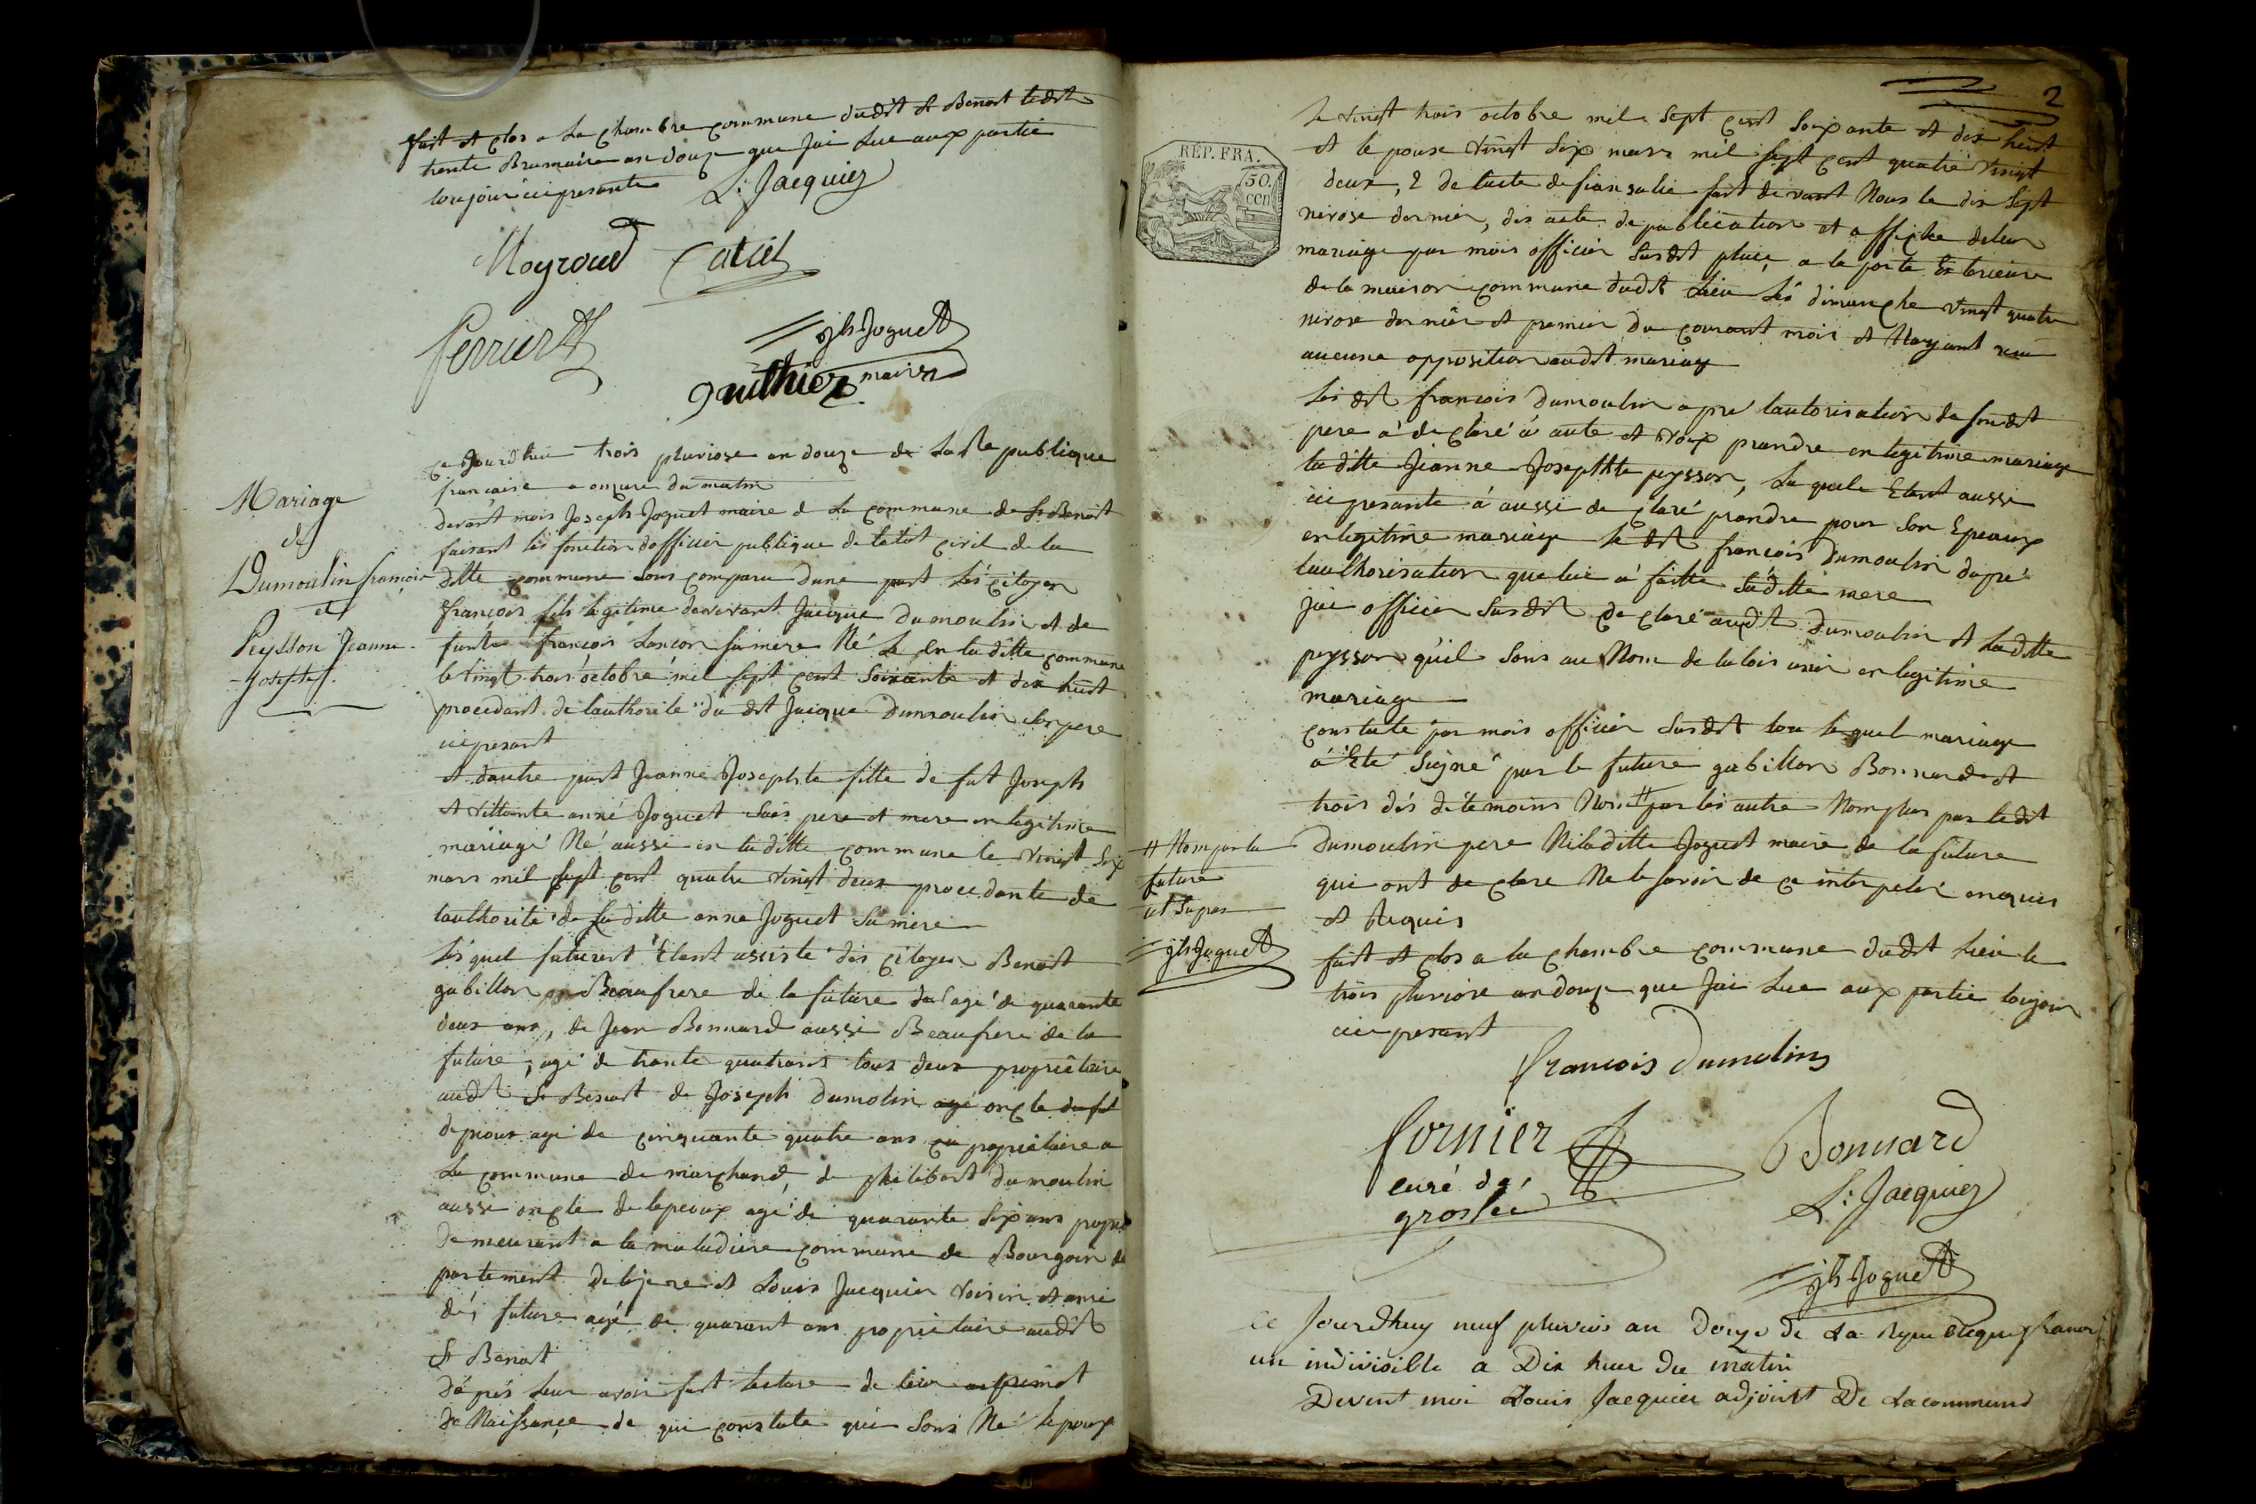 fait et clos a La Chambre commune dudit st Benoit ledit
trente Brumaire an douze que Jai Lue aux partie
toujour ici presante L: Jacquier
Moyroud Catiel
ferrier
jh Joguet
gauthier maire
Mariage
de
Dumoulin françois
et
Peysson Jeanne
Josephte
ce Jourdhui trois pluviose an douze de La Republique
francaise a onzure du matin
devant mois Joseph Joguet maire de La commune de St Benoit
faisant les fonction dofficier publique de letat civil de la
ditte commune sons comparu dune part les citoyen
françois fils legitime de vivant Jacque Dumoulin et de
funte françois Lancon sa mere Né Le En la ditte commune
le vingt trois octobre mil sept cent soixante et dix huit
procedant de lauthorite du dit Jacque Dumoulin son pere
ici presant
et dautre part Jeanne Josephte fille de fut Joseph
et vittante anné Joguet ses pere et mere en legitime
mariage Né aussi en la ditte commune le vingt six
mars mil sept cent quatre vingt deux procedante de
lauthorité de sa ditte anne Joguet sa mere
Les quel futurent Etant assisté des citoyen Benoit
gabillon Beaufrere de la future de l'agé de quarante
deux ans, de Jean Bonnard aussi Beaufrere de la
future, agé de trante quatrans tous deux propriétaire
audit St Benoit de Joseph Dumolin agé oncle du fut
depoux agé de cinquante quatre ans propriétaire a
La commune de marchand, de philibert Dumoulin
aussi oncle de lepeoux agé de quarante six ans propri
demeurant a la maladiere commune de Bourgoin de
partement de lizere et Louis Jacquier voisin et ami
des future agé de quarant ans proprietaire audit
St Benoit
D'après Leur avoir fait lecture de leur
de Naissance de qui constate qui sons Né lepoux
2
RÉP. FRA.
50. cen
le vingt trois octobre mil sept cent soixante et dix huit
et le pouse vingt six mars mil sept cent quatre vingt
deux, 2 de lacte de fiansalie fait devant Nous le dix sept
nivose dernier, des acte de publication et affiche deleur
mariage par mois officier susdit place a la porte Exterieure
de la maison commune dudit Lieu Les dimanche vingt quatre
nivose dernier et premier du courant mois et Nayant reçu
aucune opposition audit mariage
Les dit françois Dumoulin apré lautorisation de sondit
pere a declaré a aute et voix prandre en legitime mariage
la ditte Jeanne Josephte peysson, Laquele Etant aussi
ici presante á aussi de claré prandre pour son Epeoux
en legitime mariage le dit françois Dumoulin dapré
lauthorisation que lui á faitte sa ditte mere
jai officier susdit declaré audit Dumoulin et La ditte
peysson quil sons au Nom de la lois unir en legitime
mariage
constaté par mois officier susdit tou lequel mariage
á Eté signé par le future gabillon Bonnard et
trois dés de temoins Non # par les autre Nomplus par ledit
Dumoulin pere Ni laditte Joguet maire de la future
qui ont declare Ne le savoir de ce interpeler enquis
et Requis
# Nom par la
future
jh Joguet
fait et clos a la chambre commune dudit Lieu le
trois pluviose an douze que Jai Lue aux partie toujour
ici presant
francois dumolins
fornier
curé de
groslée
Bonnard
L: Jacquier
jh Joguet
ce Jourdhuy neuf pluvios an Douze de La Republique francai
un indivisible a Dix heur du matin
Devent moi Louis Jacquier adjoint De La commune